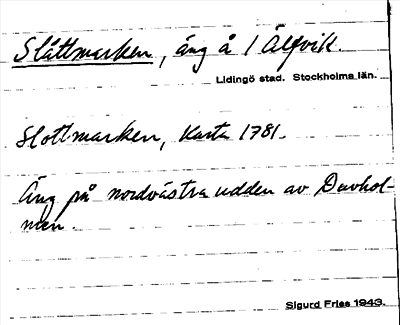 Slåttmarken, äng å 1 Älfvik.
Lidingö stad. Stockholms län.
Slottmarken, Karta 1781.
Äng på nordvästra udden av Duvhol-
men.
Sigurd Fries 1943.